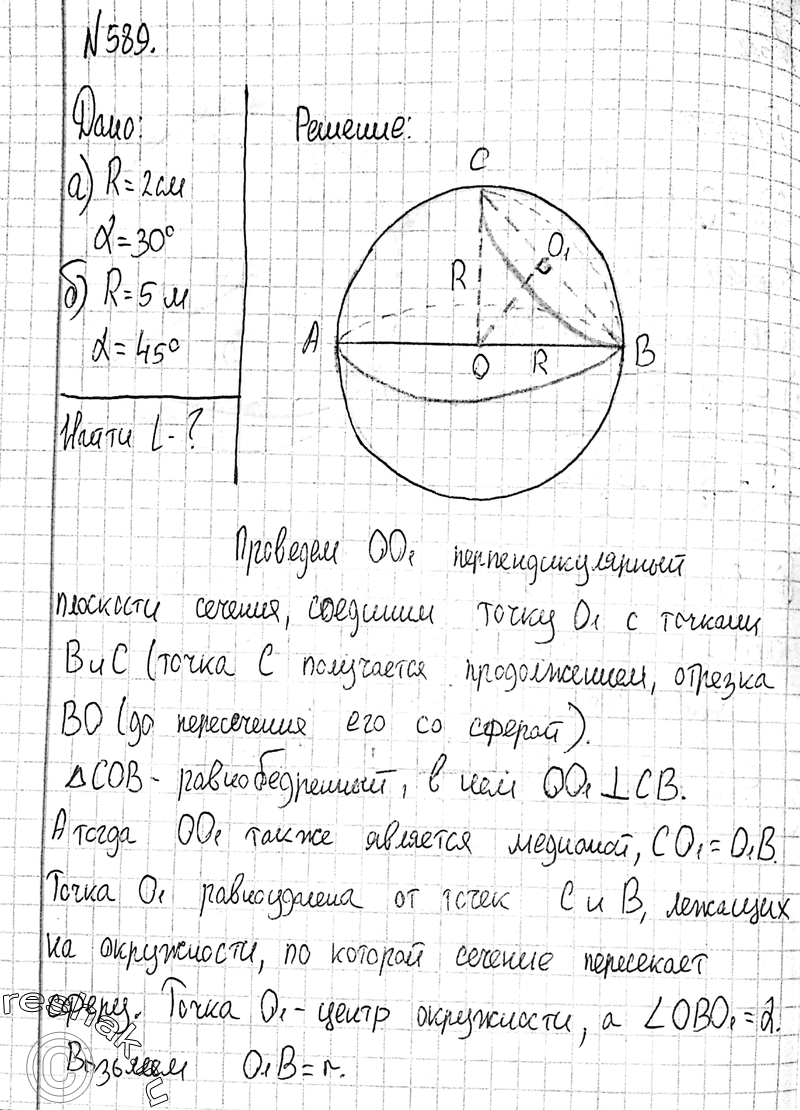 N589.
Дано:
а) R=2см
α=30°
б) R=5 м
α=45°
Найти L-?
Решение:
C
O₁
R
A
O
R
B
Проведем OO₁ перпендикулярный
плоскости сечения, соединим точку O₁ с точками
B и C (точка C получается продолжением, отрезка
BO (до пересечения его со сферой).
△COB - равнобедренный, в нем OO₁⊥CB.
А тогда OO₁ также является медианой, CO₁=O₁B.
Точка O₁ равноудалена от точек C и B, лежащих
на окружности, по которой сечение пересекает
сферу. Точка O₁ - центр окружности, а ∠OBO₁=α.
Возьмем O₁B=r.
reshak.ru
©